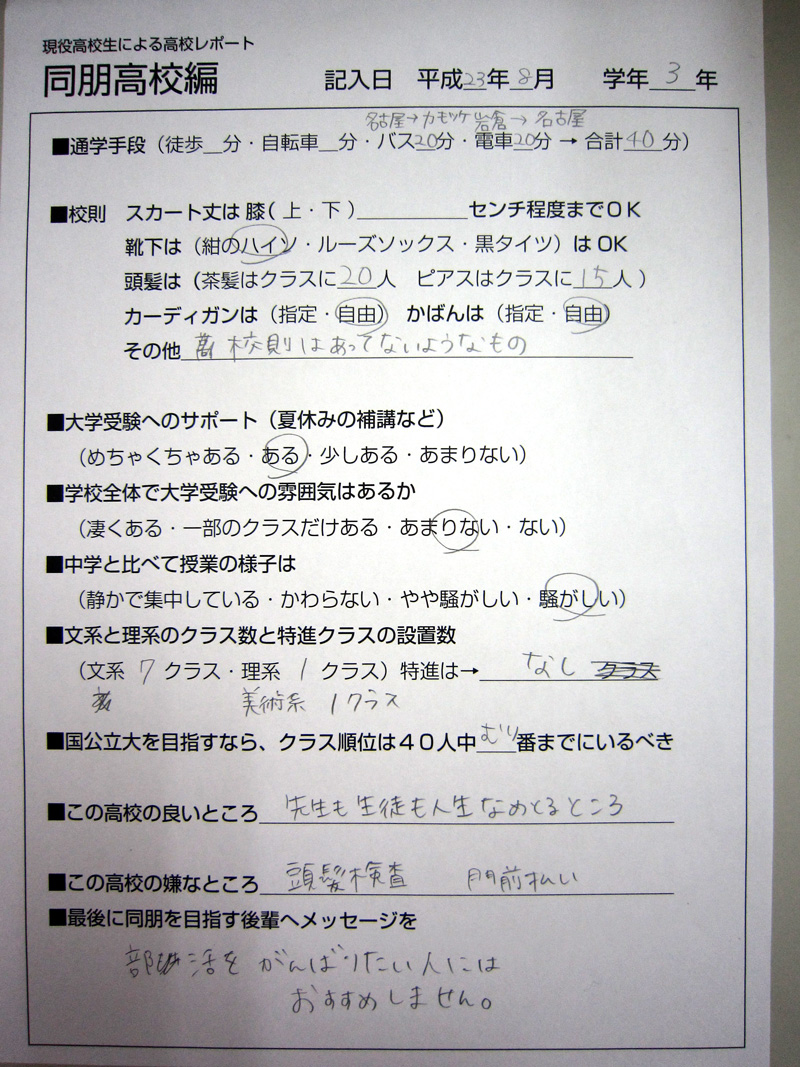 現役高校生による高校レポート
同朋高校編 記入日 平成23年8月 学年 3 年
名古屋→ 岩倉→名古屋
■通学手段（徒歩__分・自転車__分・バス20分・電車20分→合計40分）
■校則 スカート丈は膝(上・下)__________センチ程度までOK
靴下は（紺のハイソ・ルーズソックス・黒タイツ）はOK
頭髪は（茶髪はクラスに20人 ピアスはクラスに15人）
カーディガンは（指定・自由） かばんは（指定・自由）
その他 校則はあってないようなもの
■大学受験へのサポート（夏休みの補講など）
（めちゃくちゃある・ある・少しある・あまりない）
■学校全体で大学受験への雰囲気はあるか
（凄くある・一部のクラスだけある・あまりない・ない）
■中学と比べて授業の様子は
（静かで集中している・かわらない・やや騒がしい・騒がしい）
■文系と理系のクラス数と特進クラスの設置数
（文系 7 クラス・理系 1 クラス）特進は→ なし クラス
美術系 1クラス
■国公立大を目指すなら、クラス順位は４０人中むり番までにいるべき
■この高校の良いところ 先生も生徒も人生なめとるところ
■この高校の嫌なところ 頭髪検査 門前払い
■最後に同朋を目指す後輩へメッセージを
部活をがんばりたい人には
おすすめしません。